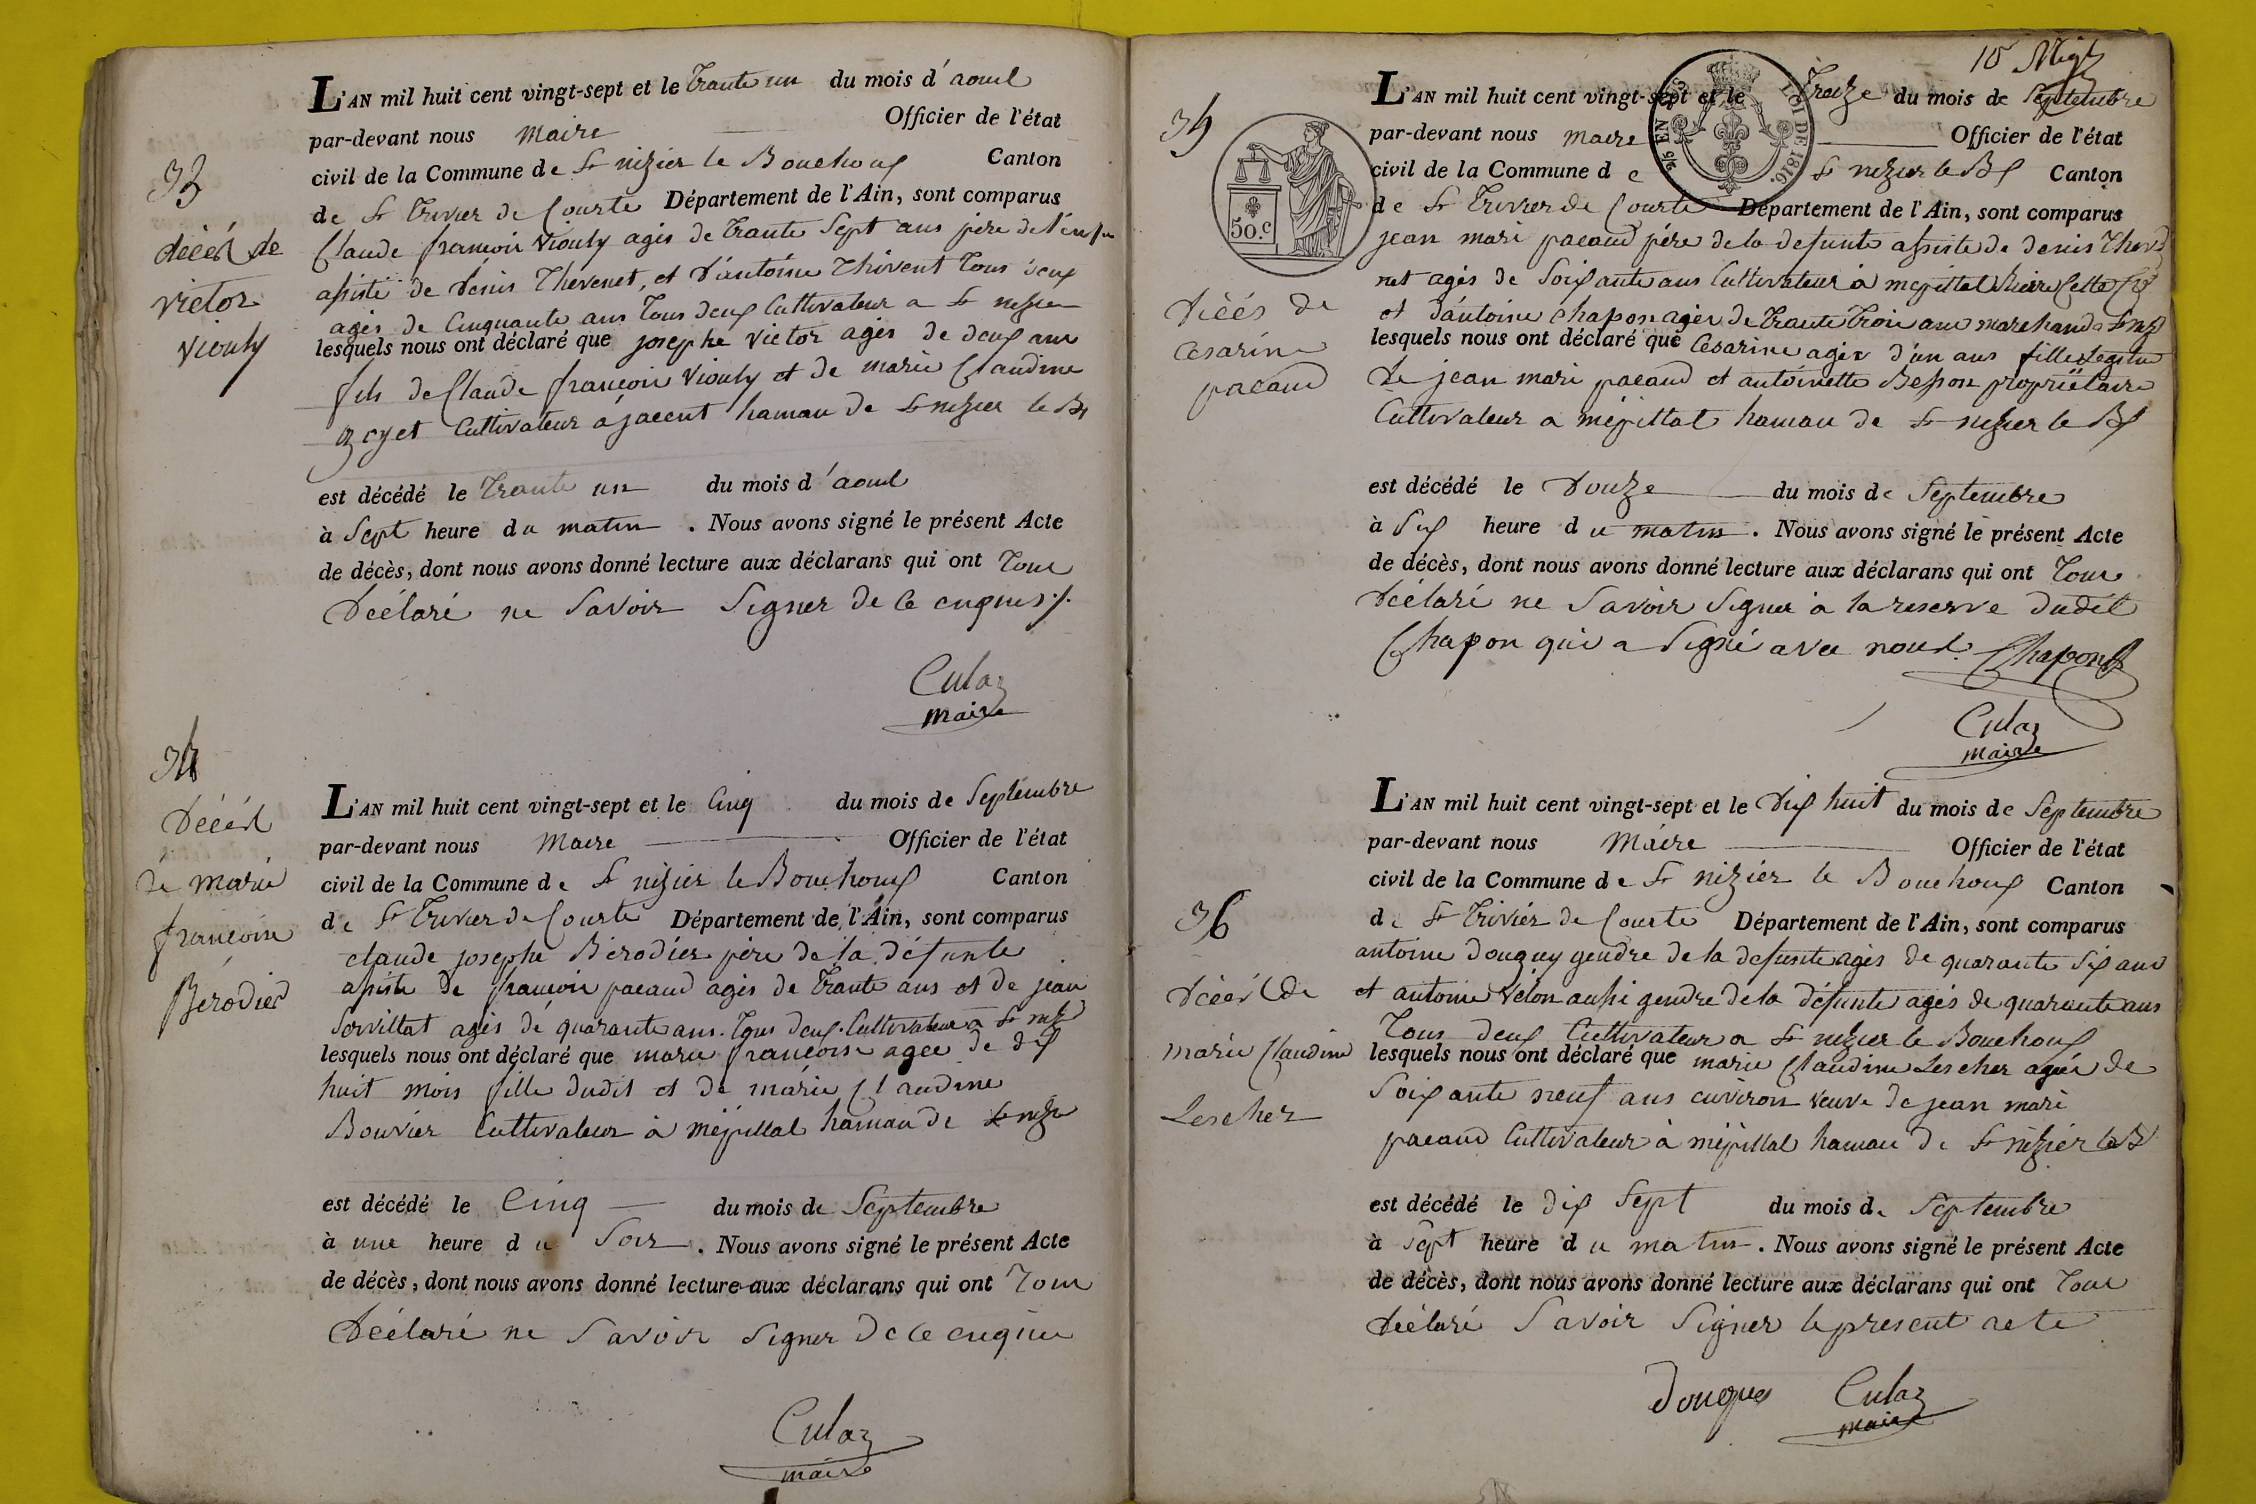 33
décéd de
victor
viouly
L'AN mil huit cent vingt-sept et le trante un du mois d'aout
par-devant nous maire Officier de l'état
civil de la Commune de St nizier le Bouchoux Canton
de St Trivier de Courte Département de l'Ain, sont comparus
Claude françois viouly agés de trante Sept ans père de l'enfan
assisté de denis Thévenet, et d'antoine Thivent tous deux
agés de Cinquante ans tous deux Cultivateur a St nizier
lesquels nous ont déclaré que josephe victor agés de deux ans
fils de Claude françois viouly et de marie Claudine
Cultivateur a jacent hamau de St nizier le Bx
est décédé le trante un du mois d'aout
à Sept heure du matin. Nous avons signé le présent Acte
de décès, dont nous avons donné lecture aux déclarans qui ont tous
Déclaré ne Savoir Signer de ce enquis ./.
Culaz
maire
34
Décéd
de marie
françoise
Bérodier
L'AN mil huit cent vingt-sept et le Cinq du mois de Septembre
par-devant nous Maire Officier de l'état
civil de la Commune de St nizier le Bouchoux Canton
de St Trivier de Courte Département de l'Ain, sont comparus
claude josephe Bérodier père de la défunte
assisté de françois pacaud agés de trante ans et de jean
Sorvillat agés de quarante ans. tous deux Cultivateur a St niz
lesquels nous ont déclaré que marie françoise agée de dix
huit mois fille dudit et de marie Claudine
Bouvier Cultivateur à mépillat hamau de St nizr
est décédé le Cinq du mois de Septembre
à une heure du Soir. Nous avons signé le présent Acte
de décès, dont nous avons donné lecture aux déclarans qui ont tous
Déclaré ne Savoir Signer de ce enquis
Culaz
maire
35
Décés de
Césarine
pacaud
50.c
EN SUS
LOI DE 1816.
L'AN mil huit cent vingt-sept et le Treize du mois de Septembre
par-devant nous maire Officier de l'état
civil de la Commune de St nizier le Bx Canton
de St Trivier de Courte Département de l'Ain, sont comparus
jean mari pacaud père de la defunte assisté de denis Theve
net agés de Soixante ans Cultivateur à mépillat
et d'antoine chapon agés de trante trois ans marchand a St niz
lesquels nous ont déclaré que Césarine agée d'un ans fille Legitime
de jean mari pacaud et antoinette Besson propriétaire
Cultivateur a mépillat hamau de St nizier le Bx
est décédé le Douze du mois de Septembre
à Six heure du matin. Nous avons signé le présent Acte
de décès, dont nous avons donné lecture aux déclarans qui ont tous
Déclaré ne Savoir Signer à la reserve dudit
Chapon qui a Signé avec nous. Chapon
Culaz
maire
36
Décéd de
marie Claudine
Lescher
L'AN mil huit cent vingt-sept et le Dix huit du mois de Septembre
par-devant nous Maire Officier de l'état
civil de la Commune de St nizier le Bouchoux Canton
de St Trivier de Courte Département de l'Ain, sont comparus
antoine douguy gendre de la defunte agés de quarante Six ans
et antoine vélon aussi gendre de la défunte agés de quarante ans
tous deux Cultivateur a St nizier le Bouchoux
lesquels nous ont déclaré que marie Claudine Lescher agée de
Soixante neuf ans environ veuve de jean mari
pacaud Cultivateur à mépillat hamau de St nizier le B
est décédé le dix Sept du mois de Septembre
à Sept heure du matin. Nous avons signé le présent Acte
de décès, dont nous avons donné lecture aux déclarans qui ont tous
Déclaré Savoir Signer le present acte
Culaz
maire